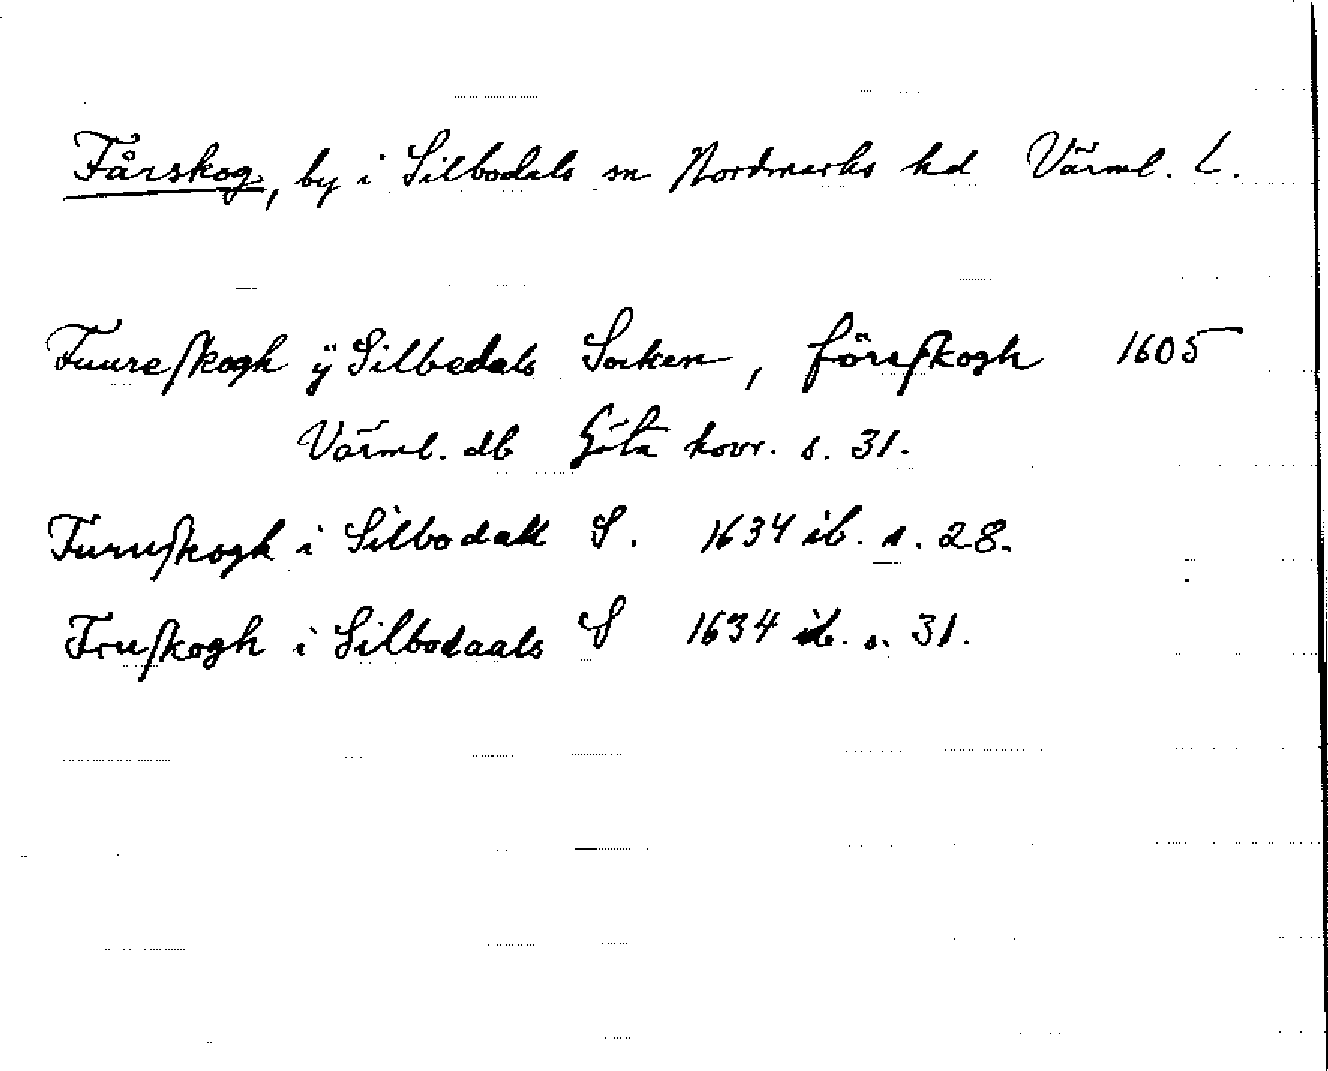 Fårskog, by i Silbodals sn Nordmarks hd Värml. L.
Fuureſkogh ÿ Silbedals Socken, förſkogh 1605
Värml. db Göta hovr. s. 31.
Furuſkogh i Silbodall S. 1634 ib. s. 28.
Fruſkogh i Silbodaals S 1634 ib. s. 31.